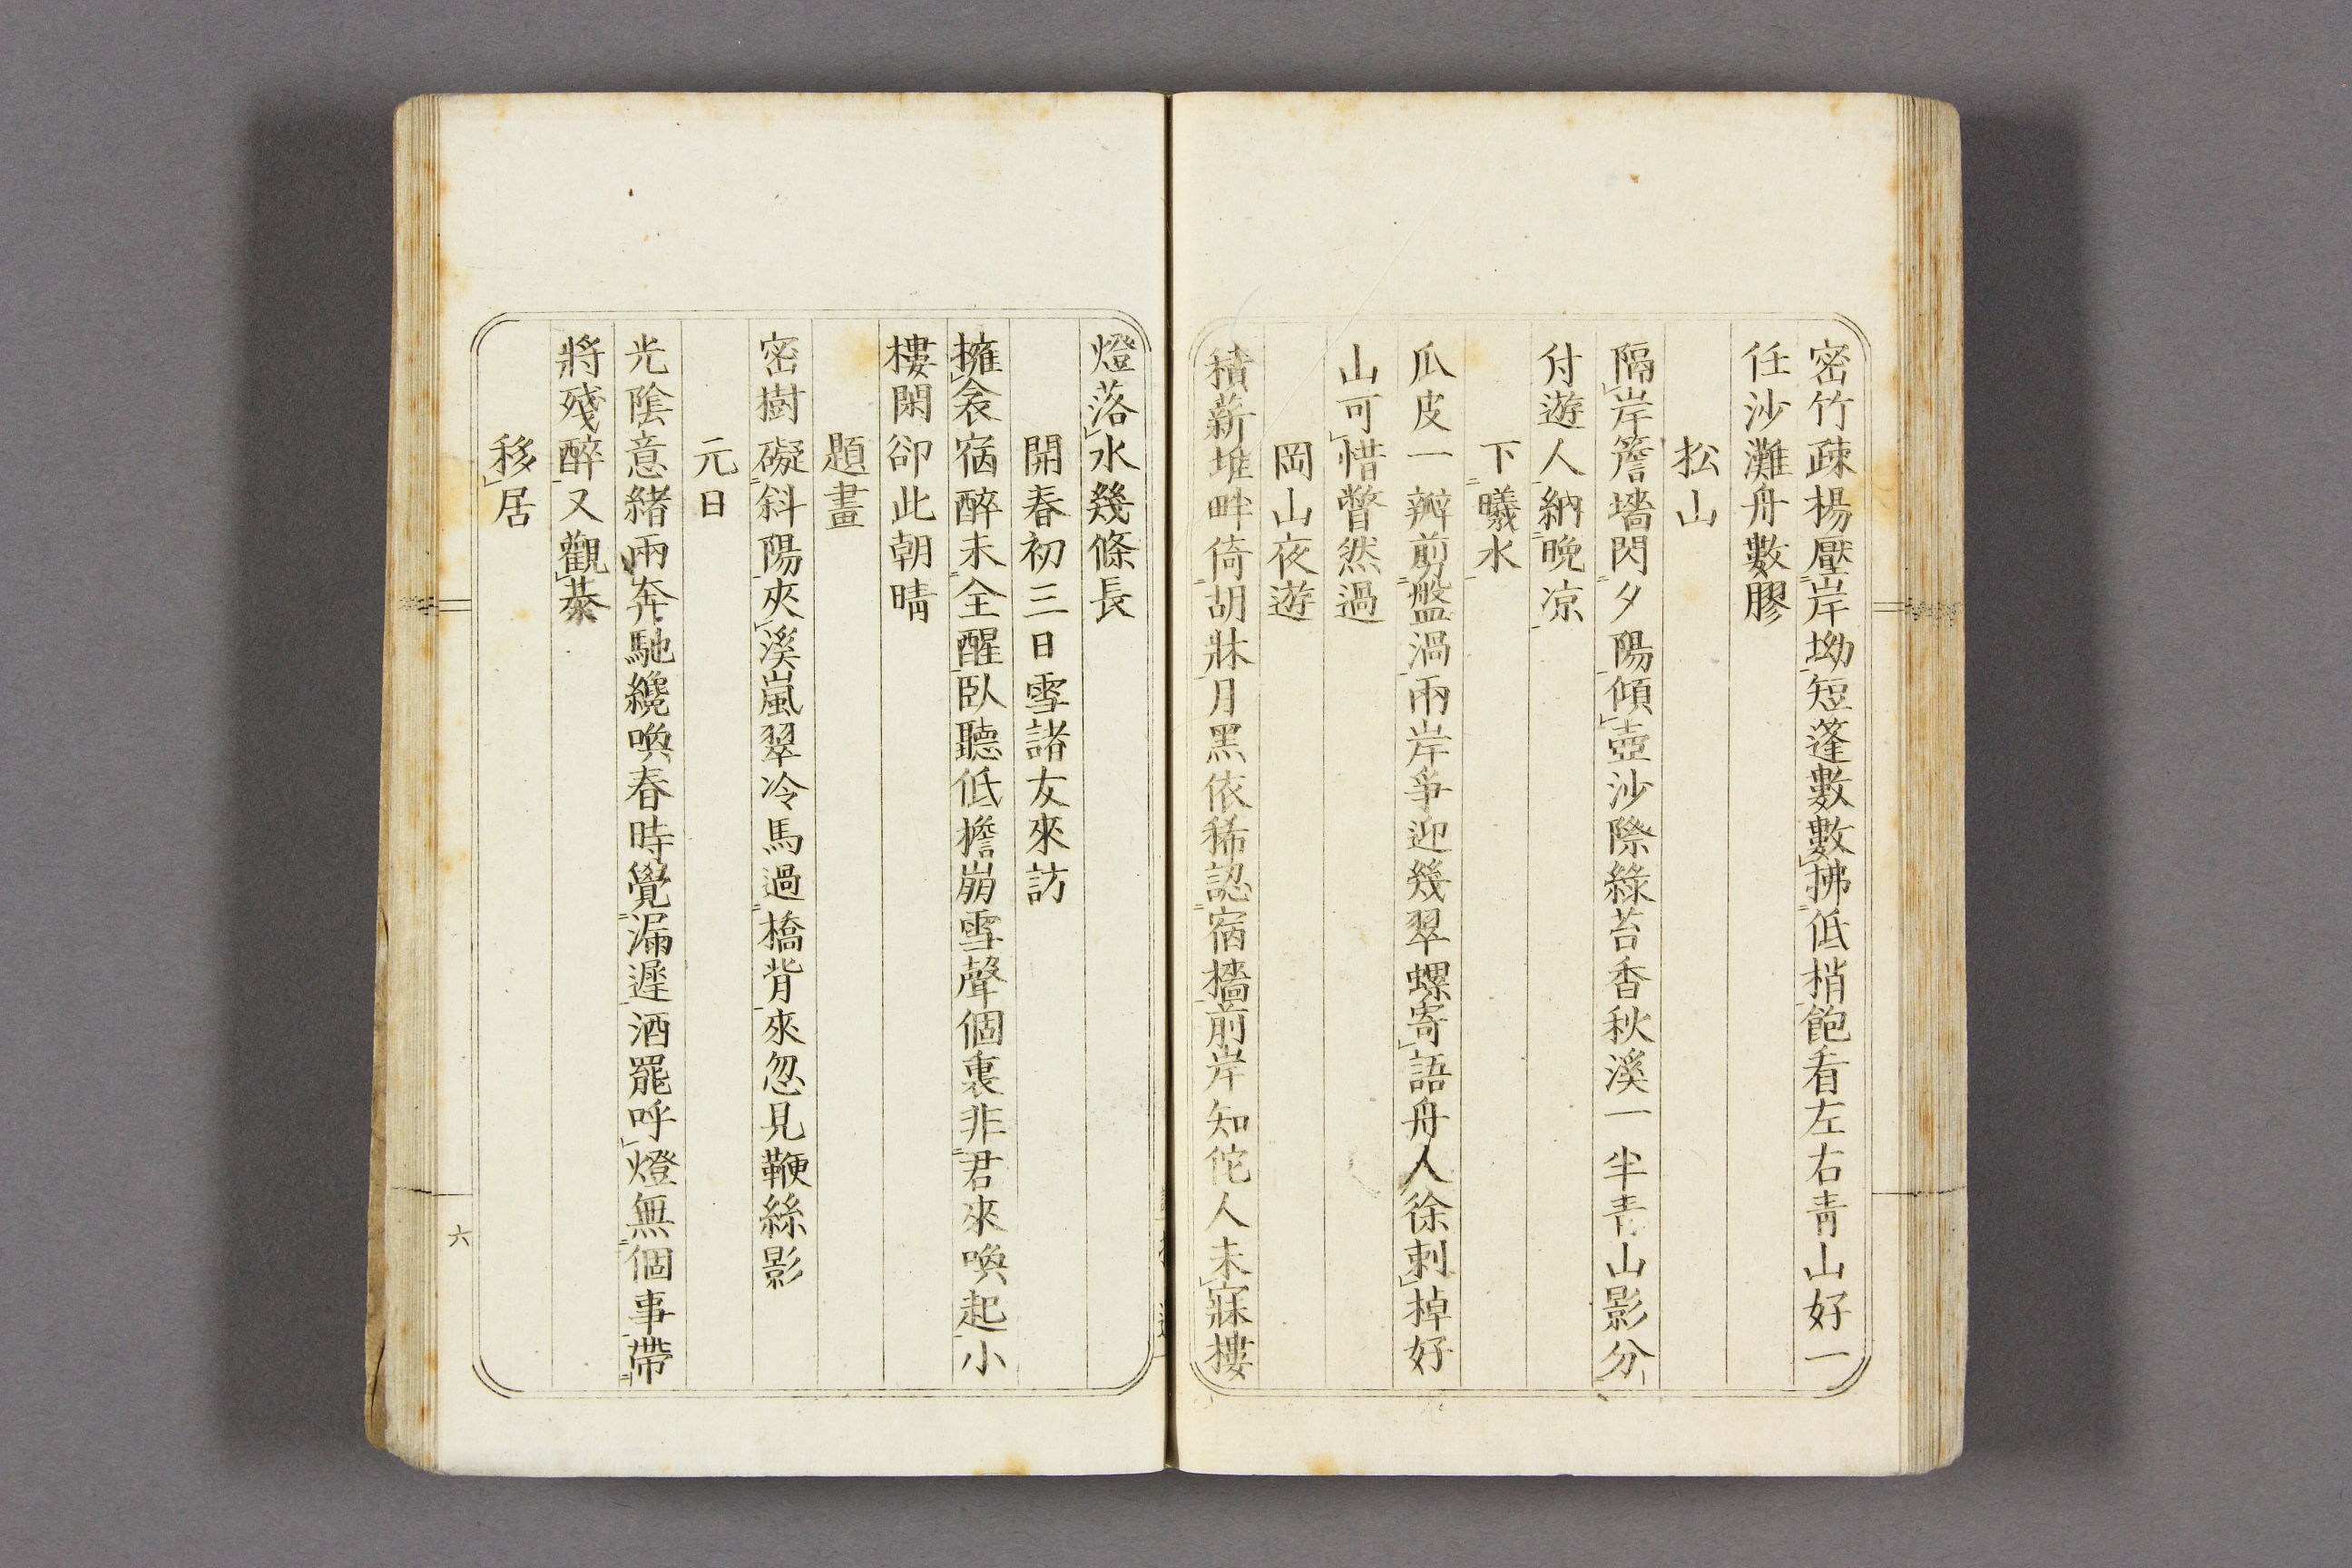 密竹疎楊壓岸坳短篷數數拂低梢飽看左右青山好一
任沙灘舟數膠
松山
隔岸簷墻閃夕陽傾壺沙際綠苔香秋溪一半青山影分
付遊人納晚凉
下曦水
瓜皮一瓣剪盤渦兩岸爭迎幾翠螺寄語舟人徐刺棹好
山可惜瞥然過
岡山夜遊
積薪堆畔倚胡牀月黑依稀認宿檣前岸知佗人未寐樓
燈落水幾條長
開春初三日雪諸友來訪
擁衾宿醉未全醒臥聽低檐崩雪聲個裏非君來喚起小
樓閑卻此朝晴
題畫
密樹礙斜陽夾溪嵐翠冷馬過橋背來忽見鞭絲影
元日
光陰意緒兩奔馳纔喚春時覺漏遲酒罷呼燈無個事帶
將殘醉又觀棊
移居
六